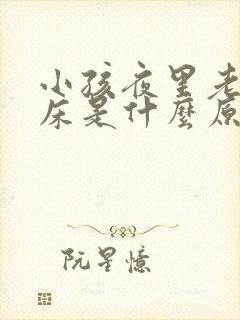 小孩夜里老
床是什麼原
阮星憶